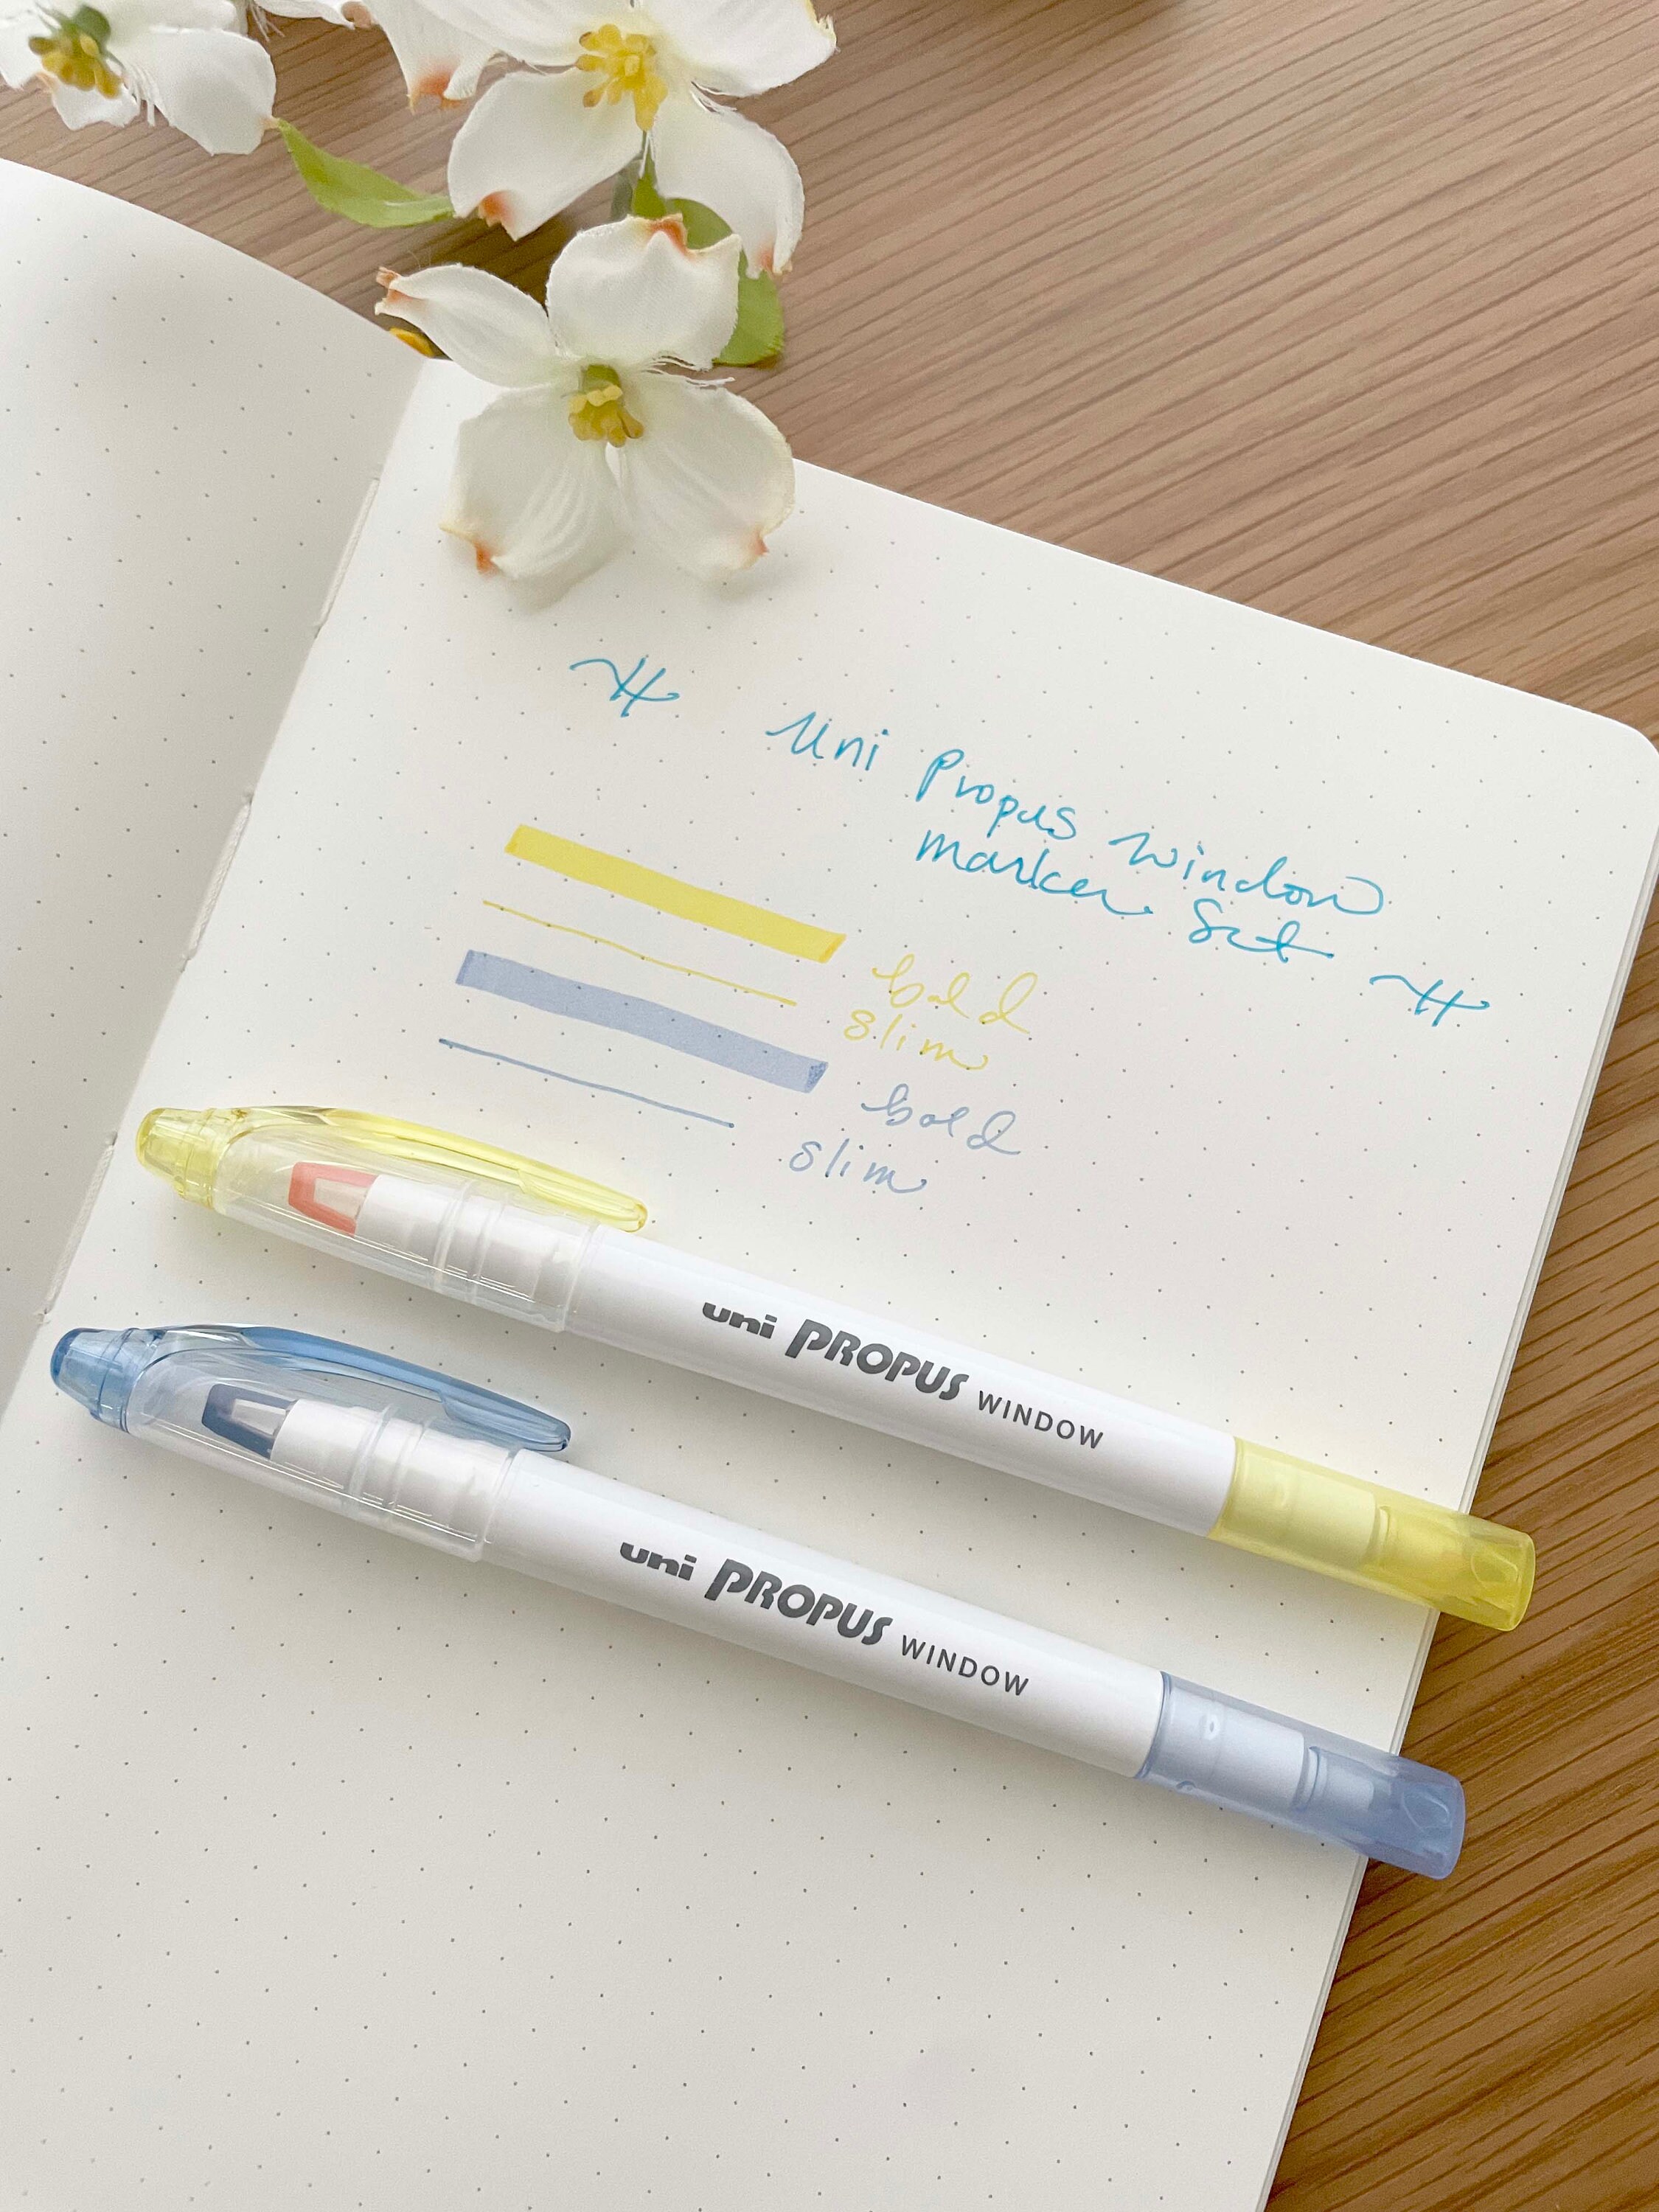 Uni Propus Window
marker Set
bold
slim
bold
slim
uni PROPUS WINDOW
uni PROPUS WINDOW